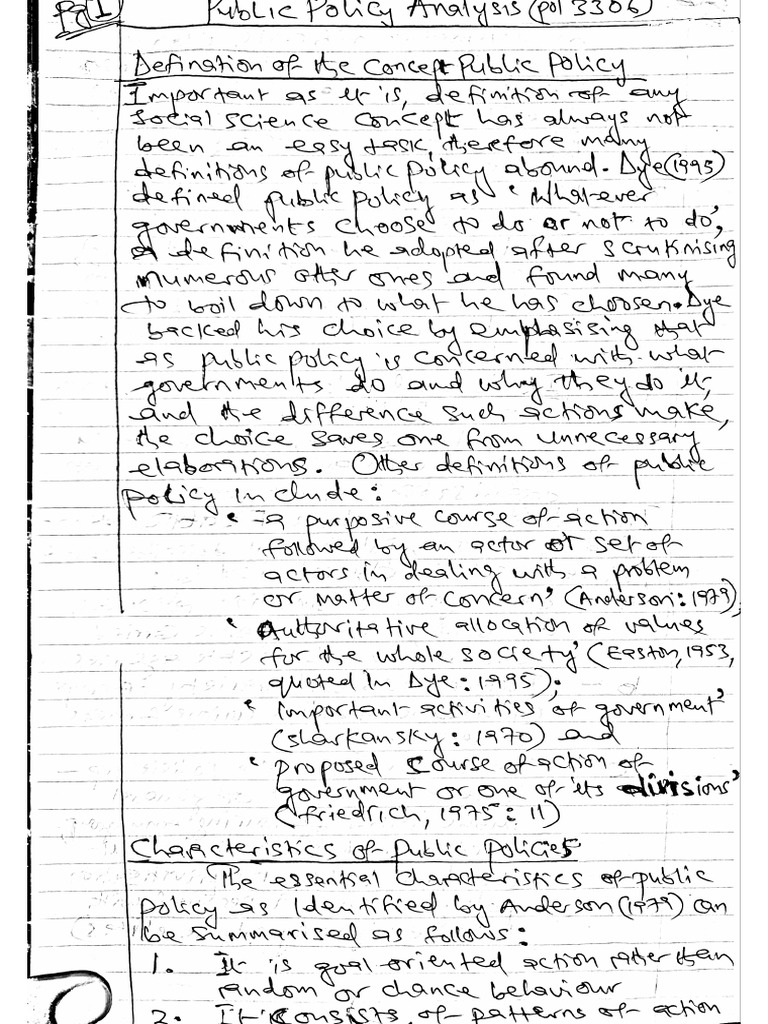 Pg 1
Public Policy Analysis (pol 3306)
Defination of the Concept Public Policy
Important as it is, definition of any
Social Science Concept has always not
been an easy task, therefore many
definitions of public policy abound. Dye (1995)
defined public policy as 'Whatever
governments choose to do or not to do',
a definition he adopted after scrutinising
numerous other ones and found many
to boil down to what he has choosen. Dye
backed his choice by emphasising that
as public policy is concerned with what
governments do and why they do it,
and the difference such actions make,
the choice saves one from unnecessary
elaborations. Other definitions of public
policy include:
' -a purposive course of action
followed by an actor or set of
actors in dealing with a problem
or matter of concern' (Anderson: 1979),
' Authoritative allocation of values
for the whole society' (Easton, 1953,
quoted in Dye: 1995);
' important activities of government'
(Sharkansky: 1970) and
' proposed course of action of
government or one of its divisions'
(friedrich, 1975: 11)
Characteristics of Public Policies
The essential characteristics of public
policy as identified by Anderson (1979) can
be summarised as follows:
1. It is goal oriented action rather than
random or chance behaviour
2. It consists of patterns of action